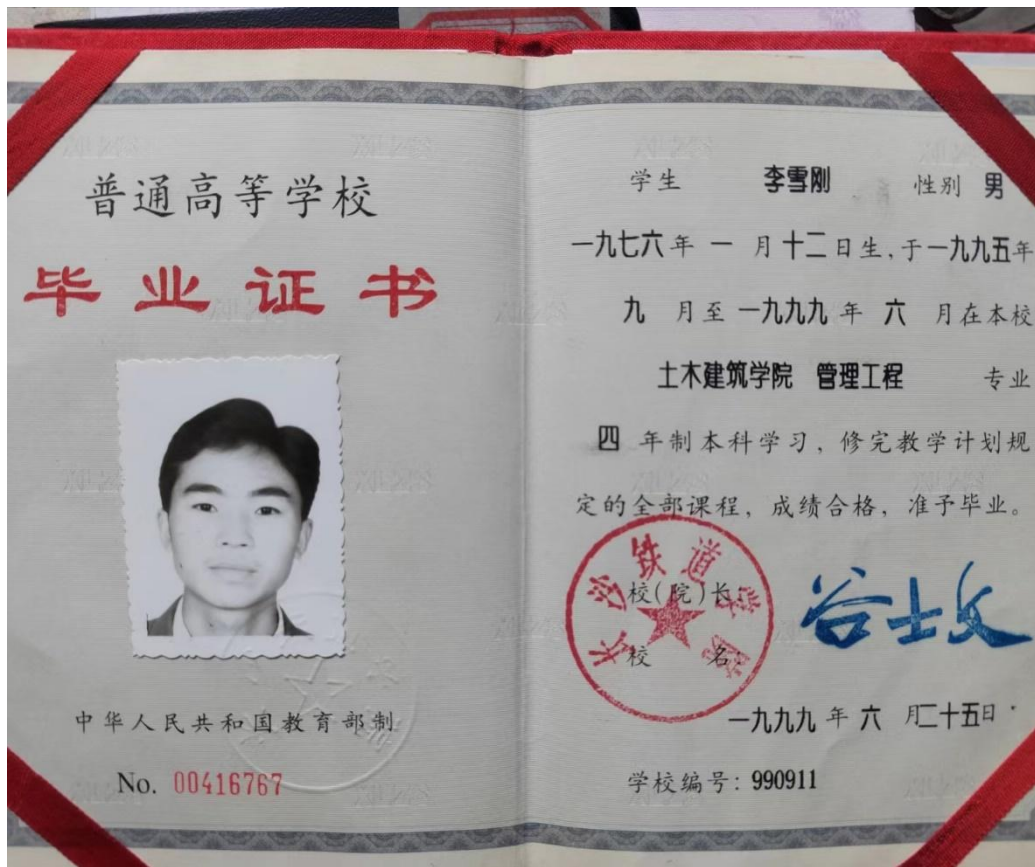 普通高等学校
毕业证书
中华人民共和国教育部制
No. 00416767
学生 李雪刚 性别 男
一九七六年 一 月十二日生,于一九九五年
九 月至一九九九年 六 月在本校
土木建筑学院 管理工程 专业
四 年制本科学习，修完教学计划规
定的全部课程，成绩合格，准予毕业。
长沙铁道学院
校(院)长:
谷士文
校 名:
一九九九年六月二十五日
学校编号: 990911